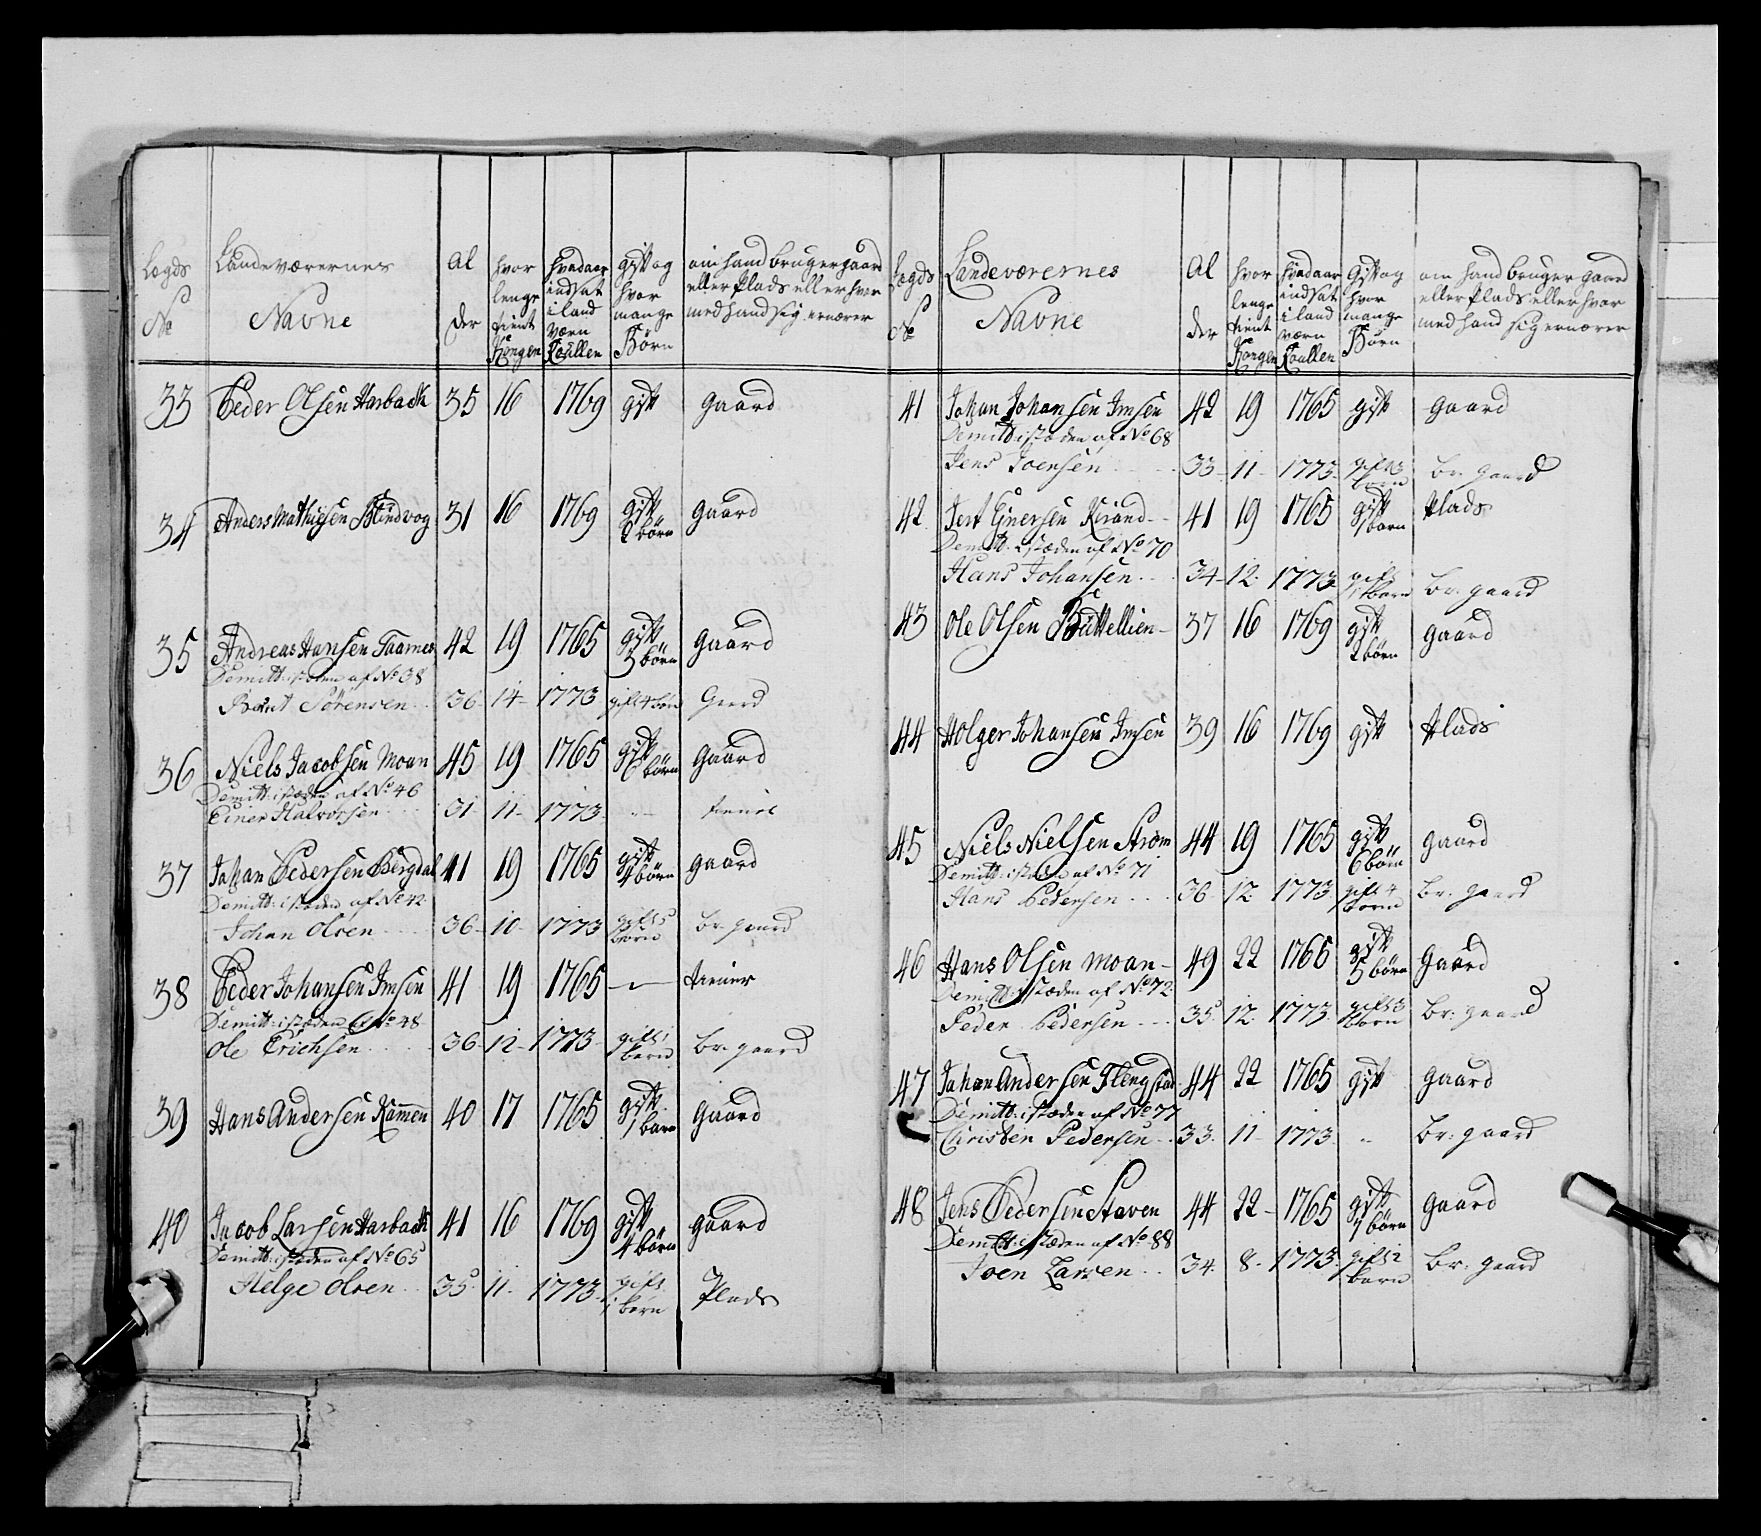 Lægds No | Landeværernes Navne | Alder | hvor lenge tient Kongen | hvad aar indsat i land værn Roullen | gift og hvor mange Børn | om hand bruger gaard eller Plads eller hvor med hand sig ernærer
33 Peder Olsen Harback 35 16 1769 gift gaard
34 Anders Mathisen Blindvog 31 16 1769 gift 2 børn gaard
35 Andreas Hansen Taarnes 42 19 1765 gift 3 børn gaard
Demitt: i stæden af No 38
Bernt Sörensen 36 14 1773 gift 4 börn Gaard
36 Niels Jacobsen Moan 45 19 1765 gift 6 børn gaard
Demitt: i stæden af No 46
Einer Halvorsen 31 11 1773 " tienner
37 Johan Pedersen Bergdal 41 19 1765 gift 4 børn gaard
Demitt: i stæden af No 42
Johan Olsen 36 10 1773 gift 5 börn br: gaard
38 Peder Johansen Imsen 41 19 1765 — tiener
Demitt: i stæden af No 48
Ole Erichsen 36 12 1773 gift 1 barn br: gaard
39 Hans Andersen Ramen 40 17 1765 gift 1 barn gaard
40 Jacob Larsen Harback 41 16 1769 gift 4 børn gaard
Demitt: i stæden af No 65
Helge Olsen 35 11 1773 gift 1 barn Plads
Lægds No | Landeværernes Navne | Alder | hvor lenge tient Kongen | hvad aar indsat i land værn Roullen | Gift og hvor mange Børn | om hand bruger gaard eller Plads eller hvor med hand sig ernærer
41 Johan Johansen Imsen 42 19 1765 gift gaard
Demitt: i stæden af No 68
Jens Joensen 33 11 1773 gift 3 börn br: gaard
42 Jert Einersen Kirand 41 19 1765 gift 1 barn Plads
Demitt: i stæden af No 70
Hans Johansen 34 12 1773 gift 1 barn br: gaard
43 Ole Olsen Buttellien 37 16 1769 gift 2 børn gaard
44 Holger Johansen Imsen 39 16 1769 gift Plads
45 Niels Nielsen Strøm 44 19 1765 gift 6 børn gaard
Demitt: i stæden af No 71
Hans Pedersen 36 12 1773 gift 4 börn br: gaard
46 Hans Olsen Moan 49 22 1765 gift 5 børn gaard
Demitt: i stæden af No 72
Peder Pedersen 35 12 1773 gift 3 börn br: gaard
47 Johan Andersen Flengstad 44 22 1765 gift gaard
Demitt: i stæden af No 77
Christen Pedersen 33 11 1773 " br: gaard
48 Jens Pedersen Staven 44 22 1765 gift 1 børn gaard
Demitt: i stæden af No 88
Joen Larsen 34 8 1773 gift 2 barn br: gaard